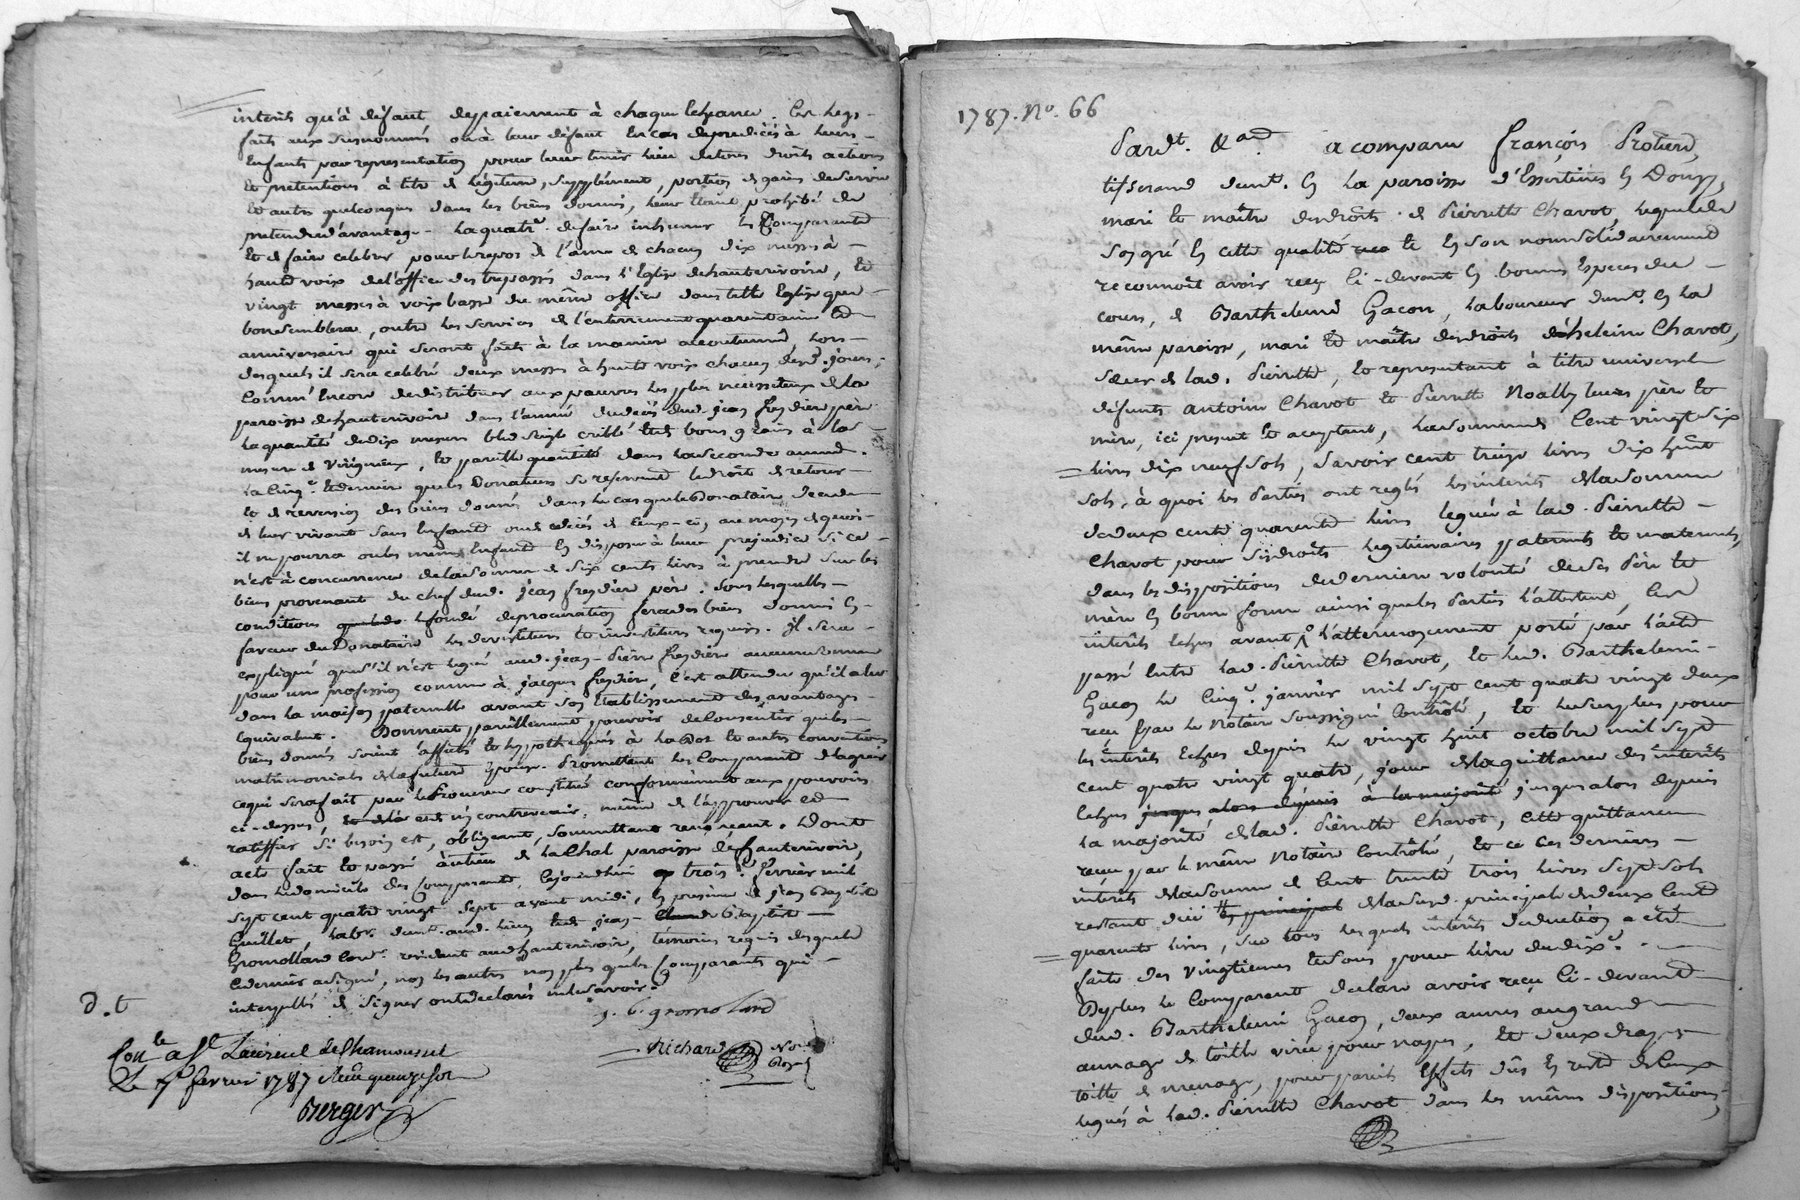 interêts qu'à défaut depaiement à chaque echeance. Les legs
faits aux susnommés ou à leur défaut En cas deprédécès à leurs
Enfants par representation pour leur tenir lieu detous droits actions
et pretentions à titre de légitime, supplément, portion de gains deservie
et autres quelconques dans les biens donnés, leur étant prohibé de
pretendre d'avantage. La quatre. defaire inhumer les Comparants
et de faire celebrer pour le repos de l'ame de chacun dix messes à
haute voix del'office des trepassés dans l'Eglise dehauterivoire, et
vingt messes à voix basse du même office dans telle Eglise que
bon semblera, outre les services de l'enterrement quarantaine et
anniversaire qui seront faits à la maniere accoutumée, lors
desquels il sera celebré deux messes à haute voix chacun desd. jours,
Comm'Encore de distribuer aux pauvres les plus necessiteux de la
paroisse dehauterivoire dans l'année dudécès dud. jean fresdiere père
la quantité dedix mesures bled seigle criblé et bons grains à la
mesure de Virigneux, et pareille quantité dans la seconde année.
La Cinq.e et derniere que les Donateurs se reservent le droit de retour
et de reversion des biens donnés dans le cas que le Donataire decede
de leur vivant sans Enfants ou decédés de Ceux-ci, au moyen de quoi
il ne pourra ou les memes Enfants En disposer à leur prejudice si ce
n'est à concurrence de la somme de six cents livres à prendre sur les
biens provenant du chef dud. jean fresdiere père. sous lesquelles
conditions le fondé deprocuration fera des biens donnés En
faveur du Donataire les devestitures et investitures requises. Il sera
expliqué que s'il n'est legué aud. jean-Pierre fresdiere aucune somme
pour une profession comme à jacques fresdiere, c'est attendu qu'il a eu
dans la maison paternelle avant son Etablissement des avantages
Equivalents. Donnent pareillement pouvoir deConsentir que les
biens donnés soient affectés et hypothequés à la Dot et autres conventions
matrimoniales de la future Epouse. Promettent les Comparants d'agréer
ce qui sera fait par le Procureur constitué conformément aux pouvoirs
ci-dessus, et n'y contrevenir, même de l'approuver et
ratiffier si besoin est, obligeant, soumettant renonçant. Dont
acte fait et passé au lieu de la Chal paroisse dehauterivoire,
dans le domicile des Comparants, cejourdhui trois.e fevrier mil
sept cent quatre vingt sept avant midi, En presence de jean Baptiste
Guillet, labr. demt. aud. lieu et de jean-Baptiste
Gromollard Cord.r resident audhauterivoire, témoins requis desquels
le dernier a signé, non les autres non plus que les Comparants qui
interpellés de signer ont declaré ne le savoir.
D.t
j. b. gromolard
Richard Not.
Royal
Con.le a St. Laurent de Chamousset
Le 7 fevrier 1787 Reçu quinze sols
Berger
1787. No. 66
Pardt. &ad. a comparu françois Protiere,
tisserand demt. En la paroisse d'Essertines En Donzy,
mari et maître des droits de Pierrette Chavot, lequel de
son gré En cette qualité et En son nom solidairement
reconnoit avoir reçu Ci-devant En bonnes Especes de
cours, de Barthelemi Gacon, laboureur demt. En la
même paroisse, mari et maître des droits d'heleine Chavot,
sœur de lad. Pierrette, et representant à titre universel
défunts antoine Chavot et Pierrette Noally leurs père et
mère, ici present et acceptant, la somme de Cent vingt six
livres dix neuf sols, savoir cent treize livres dix huit
sols, à quoi les Parties ont reglé les interêts de la somme
de deux cents quarante livres leguée à lad. Pierrette
Chavot pour ses droits legitimaires paternels et maternels,
dans les dispositions de derniere volonté de ses Père et
mère En bonne forme ainsi que les Parties l'attestent, les
interêts echus avant l'attermoyement porté par l'acte
passé Entre lad. Pierrette Chavot, et led. Barthelemi
Gacon le Cinq.e janvier mil sept cent quatre vingt deux
reçu par le Notaire soussigné Contrôlé, et le surplus pour
les interêts Echus depuis le vingt huit octobre mil sept
cent quatre vingt quatre, jour de la quittance des interêts
Echus jusques alors depuis à la majorité jusques alors depuis
la majorité de lad. Pierrette Chavot, cette quittance
reçue par le même Notaire Contrôlée, et ce ces derniers
interêts de la somme de Cent trente trois livres sept sols
restant du principal de la susd. principale de deux Cents
quarante livres, sur tous lesquels interêts deduction a été
faite des vingtiemes et sous pour livre du dix.e.
Deplus le Comparent declare avoir reçu Ci-devant
dud. Barthelemi Gacon, deux aunes au grand
aunage de toille virée pour napes, et deux draps
toille de menage, pour pareils Effets dûs En reste de Ceux
legués à lad. Pierrette Chavot dans les mêmes dispositions,